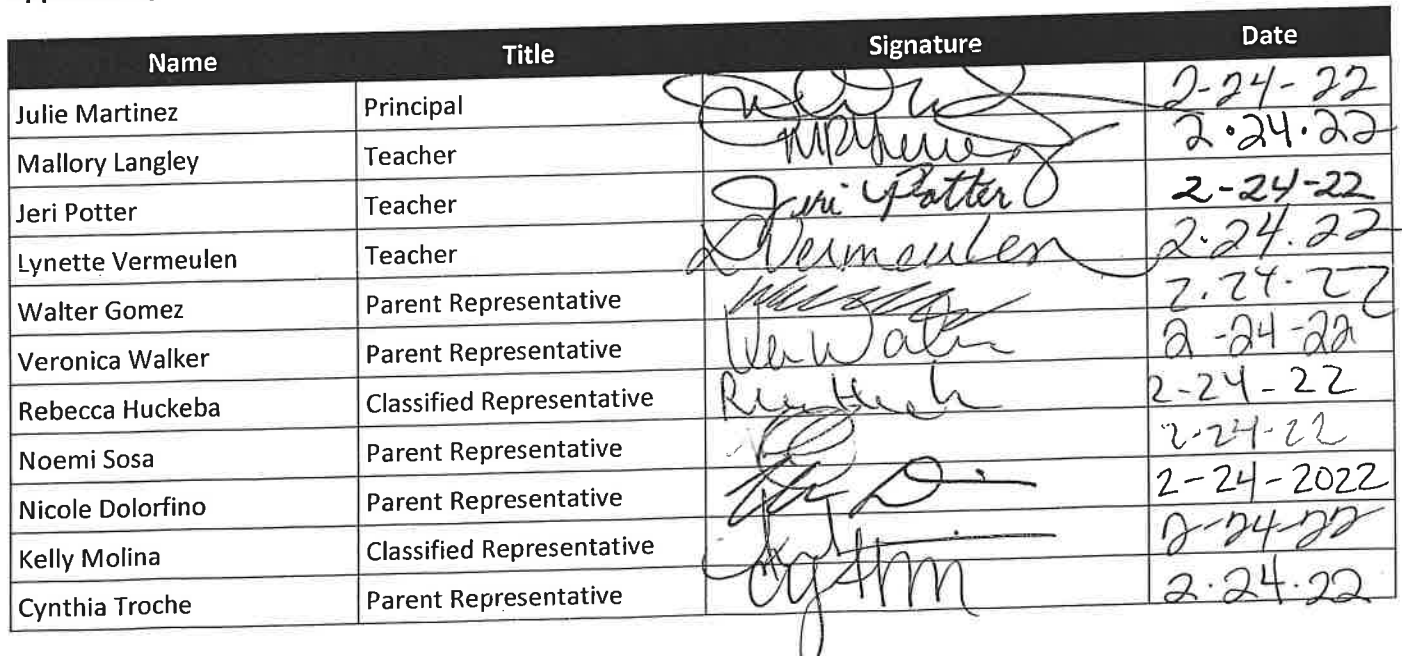 Name Title Signature Date
Julie Martinez Principal 2-24-22
Mallory Langley Teacher 2.24.22
Jeri Potter Teacher Jeri Potter 2-24-22
Lynette Vermeulen Teacher L Vermeulen 2.24.22
Walter Gomez Parent Representative 2.24.22
Veronica Walker Parent Representative 2-24-22
Rebecca Huckeba Classified Representative 2-24-22
Noemi Sosa Parent Representative 2-24-22
Nicole Dolorfino Parent Representative 2-24-2022
Kelly Molina Classified Representative 2-24-22
Cynthia Troche Parent Representative 2.24.22